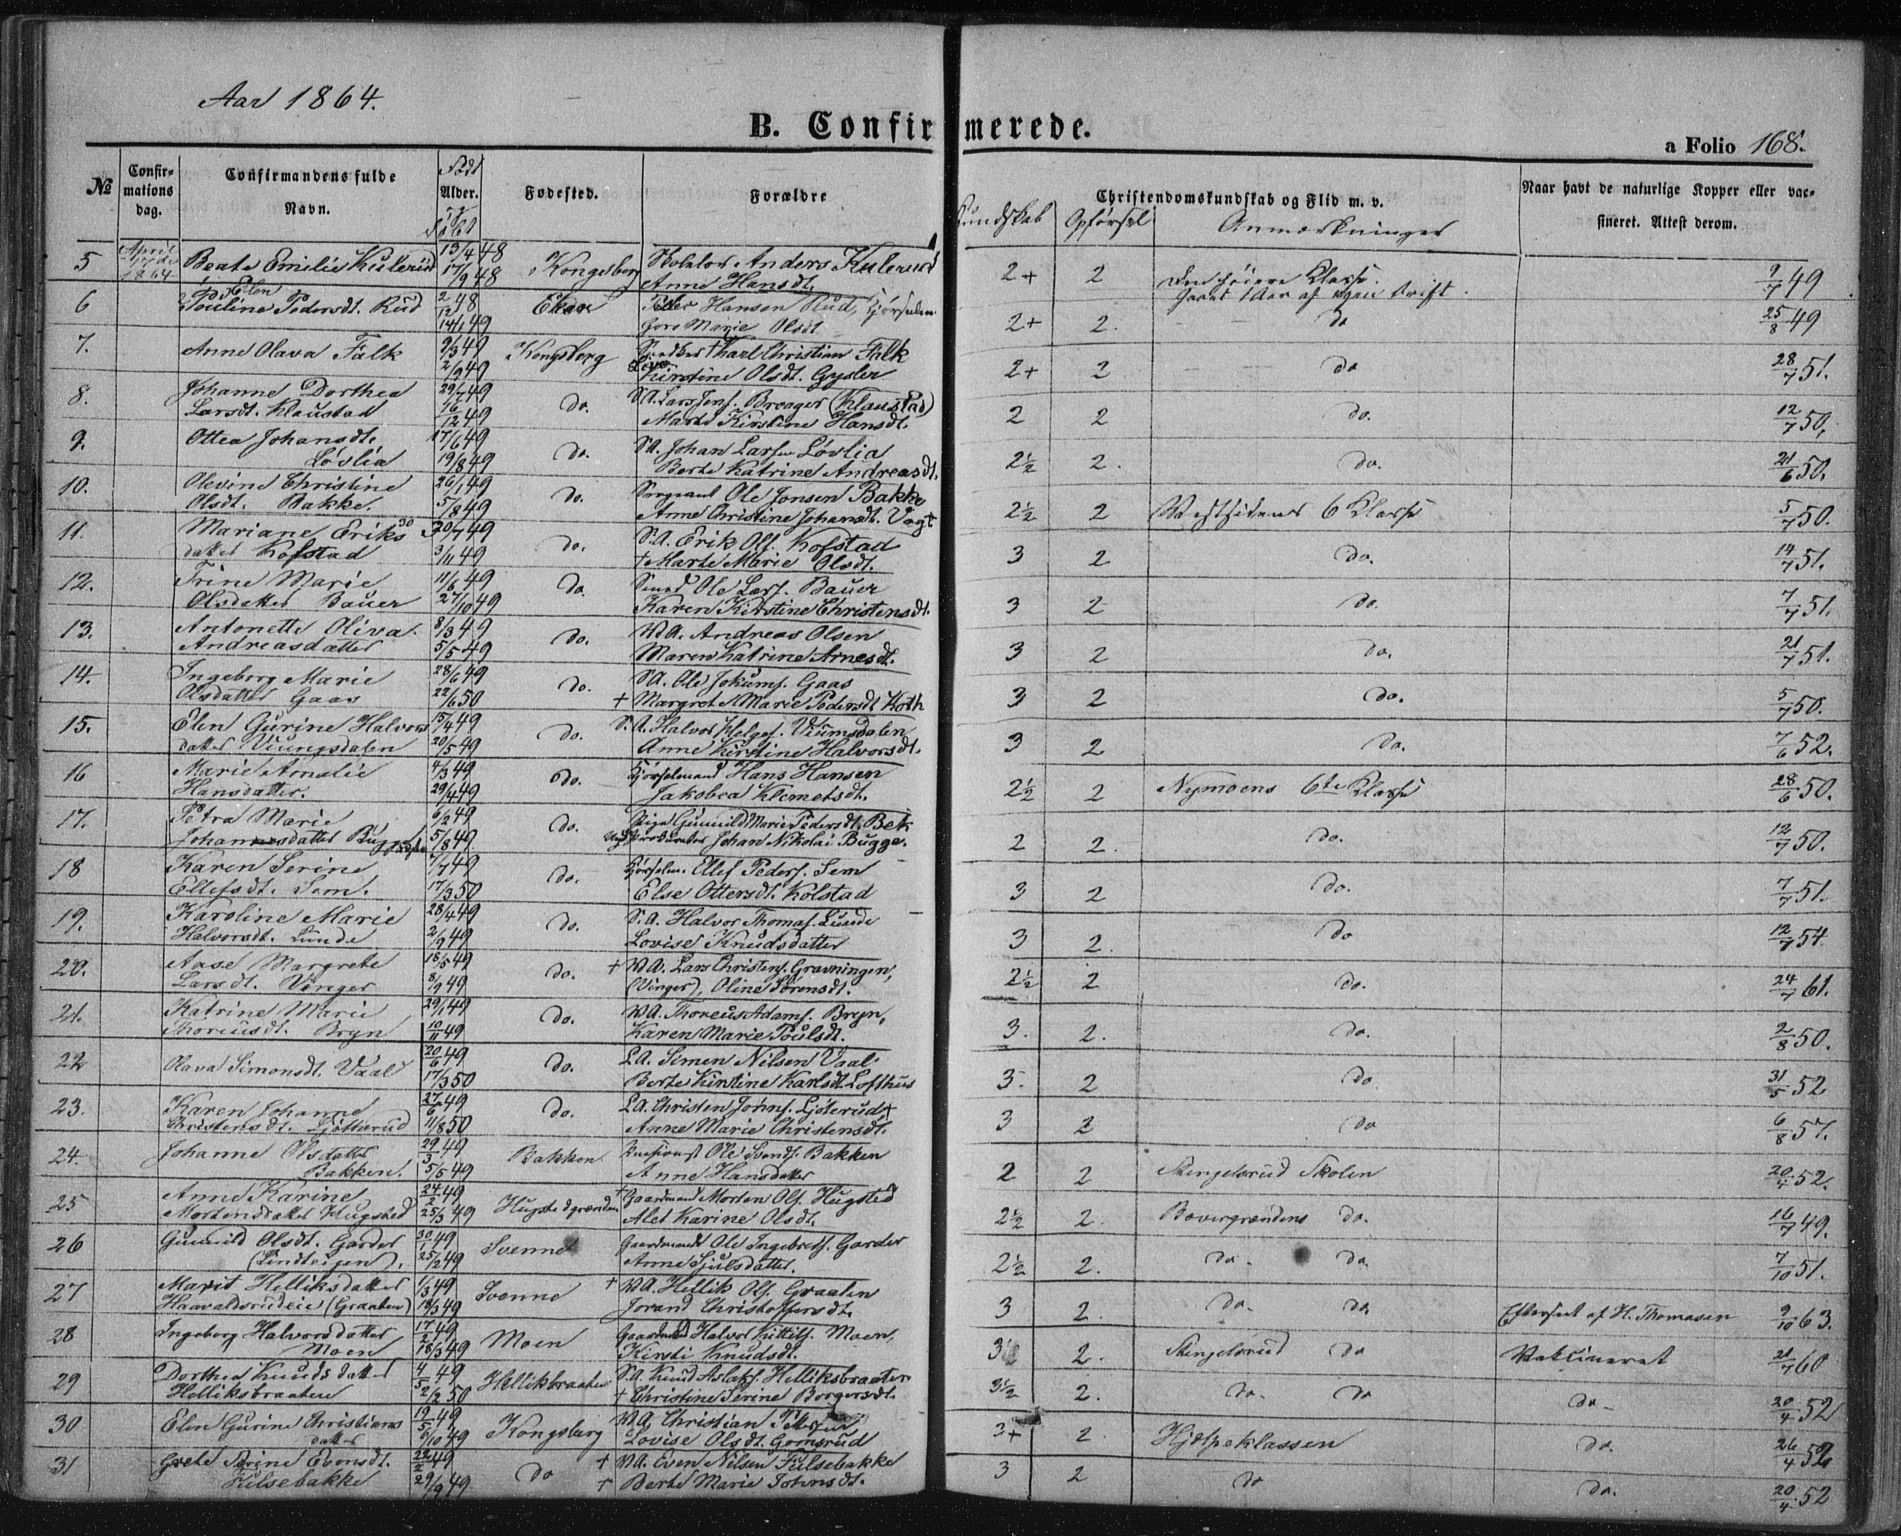 Aar 1864.
B. Confirmerede.
a Folio 168.
№ Confirmations dag. Confirmandens fulde Navn. Født Alder. Døbt Fødested. Forældre Kundskab Opførsel Christendomskundskab og Flid m. v. Anmærkninger Naar havt de naturlige Kopper eller vaccineret. Attest derom.
5 April 1864 Beate Emilie Kulerud 13/4 48 17/9 48 Kongsberg Anders Kulerud
Anne Hansdt. 2+ 2 9/7 49
6 Elen
Pouline Pedersdt. Rud 2/12 48 14/1 49 Eker Peder Hansen Rud, Kjørselm.
Goro Marie Olsdt. 2+ 2. do 25/8 49
7. Anne Olava Falk 9/3 49 2/9 49 Kongsberg Karl Christian Falk
Kirstine Olsdt. Gysler 2+ 2 do 28/7 51.
8. Johanne Dorthea 29/7 49 do. S.A. Lars Jens. Breager (Klaustad)
Larsdt. Klaustad 16/12 49 Marte Kirstine Hansdt. 2 2 do. 12/7 50,
9. Ottea Johansdt. 17/6 49 do. S.A. Johan Larsen Løvlia
Løvlia 19/8 49 Berte Katrine Andreasdt. 2½ 2. do. 21/6 50.
10. Olevine Christine 26/1 49 do. Sergeant Ole Jonsen Bakke
Olsdt. Bakke. 5/8 49 Anne Christine Johansdt. Vogt 2½ 2 Vestsidens 6 Klasse 5/7 50.
11. Mariane Eriks 30/7 49 do. S.A. Erik Ols. Kofstad
datter Kofstad 3/11 49 + Marte Marie Olsdt. 3 2 do. 14/7 51.
12. Trine Marie 11/6 49 do. Smed Ole Lars. Bauer
Olsdatter Bauer 27/10 49 Karen Kirstine Christensdt. 3 2 do. 7/7 51.
13. Antonette Oliva 8/3 49 do. V.A. Andreas Olsen
Andreasdatter 5/5 49 Maren Katrine Arnesdt. 3 2 do. 21/7 51.
14. Ingeborg Marie 28/6 49 do. S.A. Ole Jokums. Gaas
Olsdatter Gaas 22/6 50 + Margret Marie Pedersdt. Koth 3 2 do. 5/7 50.
15. Elen Gurine Halvors 15/4 49 do. S.A. Halvor Helges. Viumsdalen
datter Viungsdalen 20/5 49 Anne Kirstine Halvorsdt. 3 2 do. 7/6 52.
16 Marie Amalie 4/3 49 do. Kjørselmand Hans Hansen
Hansdatter. 29/4 49 Jakobea Klemetsdt. 2½ 2 Nymoens 6te Klasse 28/6 50.
17. Petra Marie 6/2 49 do. Pige Gunnild Marie Pedersdt. Bek
Johannesdatter Bugge 5/8 49 Johan Nikolai Bugge. 2 2. do. 12/7 50.
18 Karen Serine 7/7 49 do. Kjørselm. Ellef Peders. Sem
Ellefsdt. Sem. 17/3 50 Else Ottersdt. Kolstad 3 2 do. 7/7 51.
19. Karoline Marie 28/4 49 do. S.A. Halvor Thomas. Lunde
Halvorsdt. Lunde 2/9 49 Lovise Knudsdatter 3 2. do 12/7 54.
20. Aase Margrete 18/5 49 do. + V.A. Lars Christens. Gravningen,
Larsdt. Vinger 8/9 49 (Vinger), Oline Sørensdt. 2½ 2 do. 24/7 61.
21. Katrine Marie 29/1 49 do. V.A. Thoreus Adams. Bryn,
Thoreusdt. Bryn 10/11 49 Karen Marie Poulsdt. 3. 2. do. 2/8 50.
22 Olava Simonsdt. Vaal 20/6 49 17/3 50 do. S.A. Simen Nilsen Vaal
Berte Kirstine Karlsdt. Lofthus 3. 2 do. 31/5 52
23. Karen Johanne 27/6 49 do. S.A. Christen Jørns. Ljøterud +
Christensdt. Ljøterud 11/8 50 Anne Marie Christensdt. 3 2 do 6/8 57.
24. Johanne Olsdatter 29/3 49 Bakken Ole Svends. Bakken
Bakken. 5/5 49 Anne Hansdatter 2 2 Stengelsrud Skolen 20/4 52.
25 Anne Karine 24/2 49 Hugstedgrænden + Gaardmand Morten Ols. Hugsted
Mortensdatter Hugsted 25/3 49 Alet Karine Olsdt. 2½ 2. Bevergrændens do. 16/7 49.
26 Gunnild Olsdt. Garder 30/1 49 Svenne Gaardmand Ole Ingebrets. Garder
(Lindteigen). 25/2 49 Anne Sjulsdatter. 2½ 2. do. do 7/10 51.
27 Marit Helliksdatter 1/3 49 Svenne + V.A. Hellik Ols. Graaten
Haavaldsrudeie (Graaten) 18/3 49 Jorand Christoffersdt. 3 2. do. do Efterseet af H. Thomasen 9/10 63.
28 Ingeborg Halvorsdatter 17/2 49 Moen Gaardmd. Halvor Kittils. Moen
Moen 18/3 49 Kirsti Knudsdt. 3 2. Stengelsrud do Vakcineret 21/7 60
29 Dorthea Knudsdatter 4/5 49 Helliksbraaten S.A. Knud Aslaks. Helliksbraaten
Helliksbraaten 2/2 50 + Christine Serine Borgersdt. 3½ 2. do. do do. 20/4 52
30 Elen Gurine Christians 19/5 49 Kongsberg V.A. Christian Petersen
datter 6/10 49 Lovise Olsdt. Gomsrud 3+ 2. Hjelpeklassen do. 26/4 52
31 Grete Serine Evensdt. 22/2 49 do + V.A. Even Nilsen Kilsebakke
Kilsebakke 29/9 49 + Berte Marie Johnsdt. 3 2 do do. 20/4 52